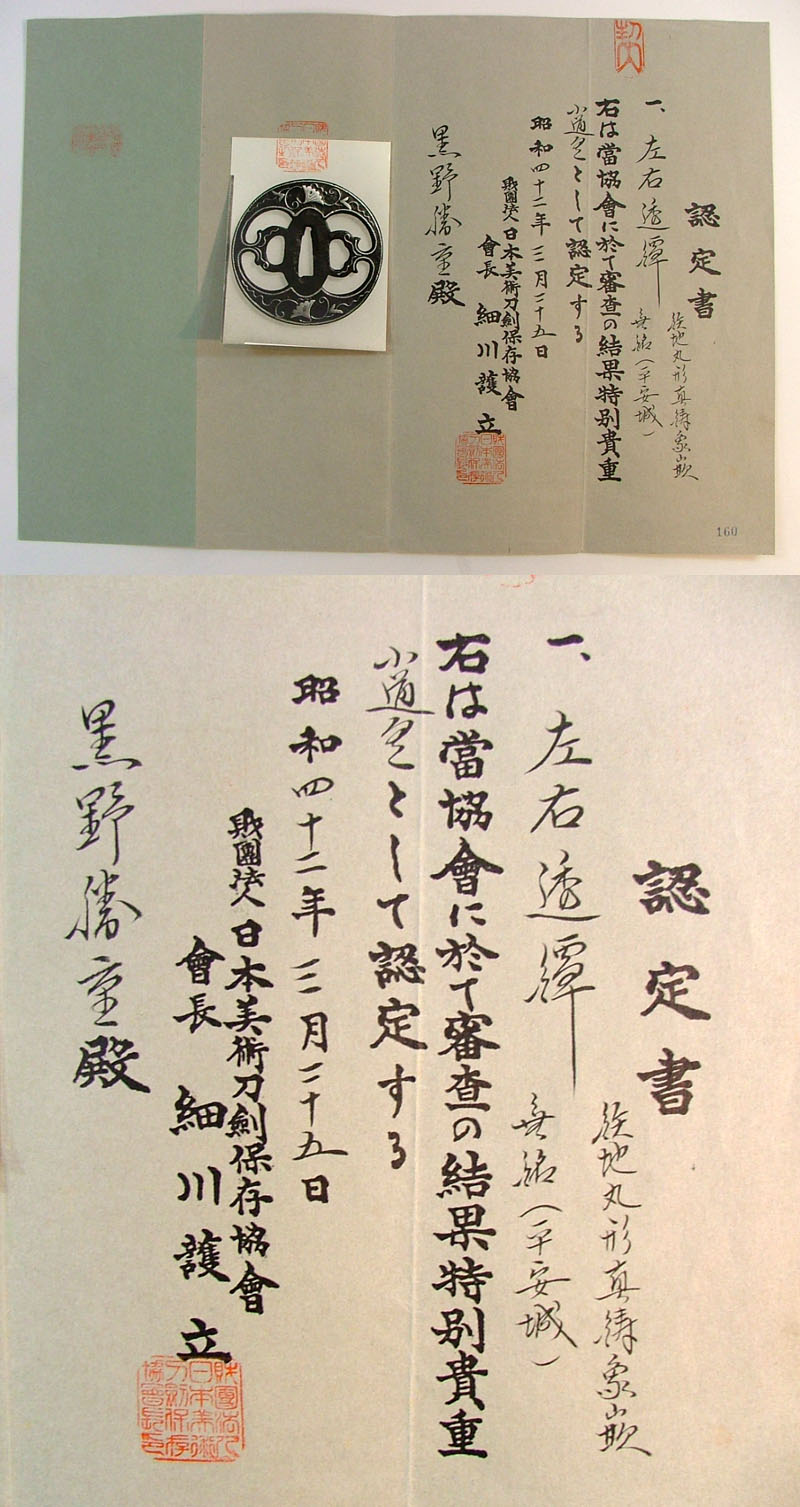 認定書
銕地丸形真鍮象嵌
一、左右透鐔
無銘(平安城)
右は當協會に於て審査の結果特別貴重
小道具として認定する
昭和四十二年三月二十五日
財團法人日本美術刀劍保存協會
會長 細川護立
黒野勝重殿
160
認定書
銕地丸形真鍮象嵌
一、左右透鐔
無銘(平安城)
右は當協會に於て審査の結果特別貴重
小道具として認定する
昭和四十二年三月二十五日
財團法人日本美術刀劍保存協會
會長 細川護立
黒野勝重殿